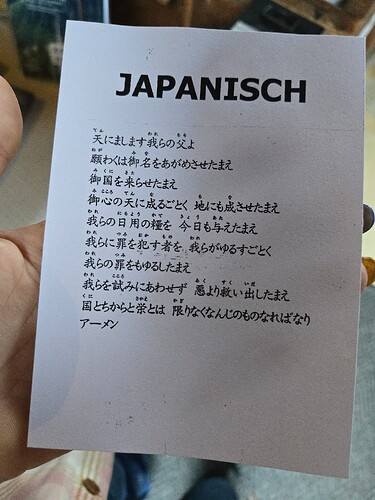 JAPANISCH
天にまします我らの父よ
願わくは御名をあがめさせたまえ
御国を来らせたまえ
御心の天に成るごとく 地にも成させたまえ
我らの日用の糧を 今日も与えたまえ
我らに罪を犯す者を 我らがゆるすごとく
我らの罪をもゆるしたまえ
我らを試みにあわせず 悪より救い出したまえ
国とちからと栄とは 限りなくなんじのものなればなり
アーメン